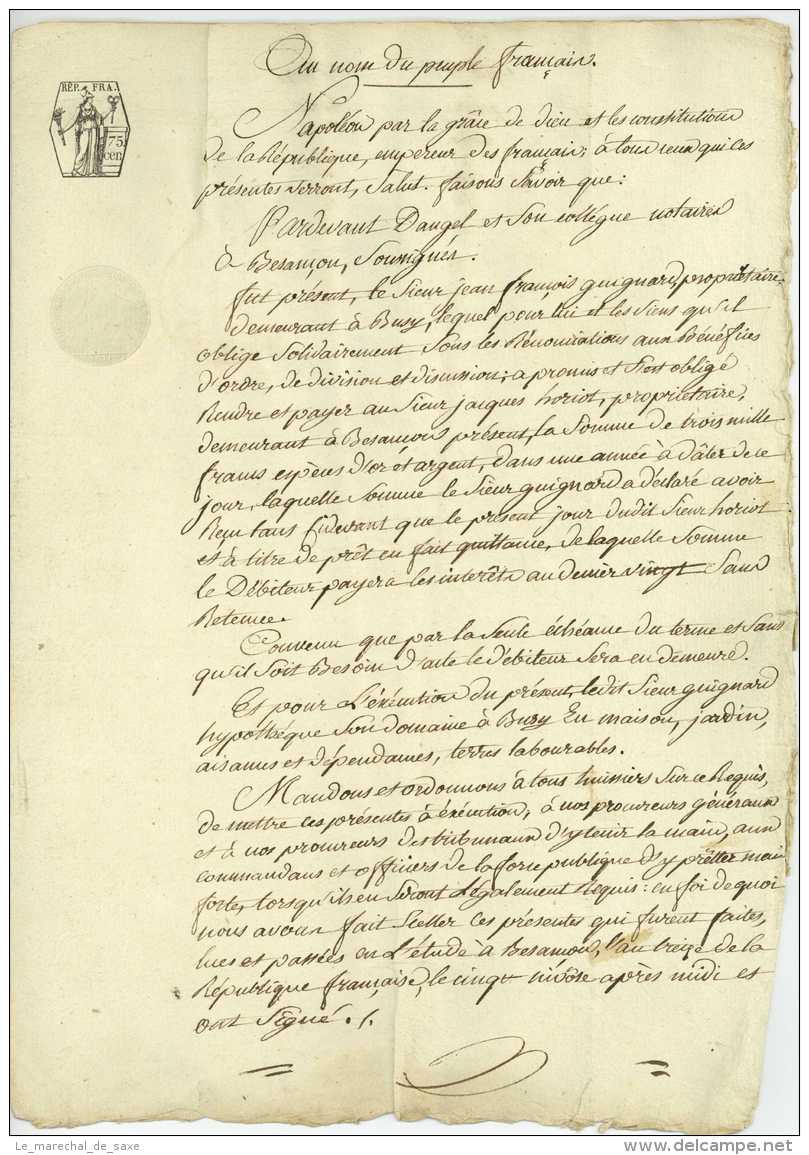 Au nom du peuple français.
RÉP. FRA.
75
cen.
Napoléon par la grâce de dieu et les constitutions
de la République, empereur des français; à tous ceux qui ces
présentes verront, Salut. faisons Savoir que:
Pardevant Dangel et son collégue notaires
à Besançon, Soussignés.
fut présent, le Sieur jean françois guignard, propriétaire,
demeurant à Busy, lequel pour lui et les Siens qu'il
oblige Solidairement Sous les Rénonciations aux Bénéfices
d'ordre, de division et discussion; a promis et s'est obligé
Rendre et payer au Sieur jacques horiot, propriétaire,
demeurant à Besançon présent, la Somme de trois mille
francs espèces d'or et argent, dans une année à dâter de ce
jour, laquelle Somme le Sieur guignard a déclaré avoir
Reçu tans Cidevant que le présent jour dudit Sieur horiot
et à titre de prêt en fait quittance, de laquelle Somme
le Débiteur payera les interêts au denier vingt Sans
Retenue.
Convenu que par la Seule échéance du terme et Sans
qu'il Soit Besoin d'acte le débiteur Sera en demeure.
Et pour L'éxécution du présent, ledit Sieur guignard
hypothéque Son domaine à Busy En maison, jardin,
aisances et dépendances, terres labourables.
Mandons et ordonnons à tous huissiers Sur ce Requis,
de mettre ces présentes à éxécution, à nos procureurs généraux
et à nos procureurs des tribunaux d'y tenir la main, aux
commandans et officiers de la force publique d'y prêtter main
forte, lorsqu'ils en Seront Légalement Requis: en foi de quoi
nous avons fait Sceller ces présentes qui furent faites,
lues et passées en L'étude à Besançon, l'an treize de la
République française, le cinq nivôse après midi et
ont Signé. /.
Le_marechal_de_saxe
www.delcampe.net